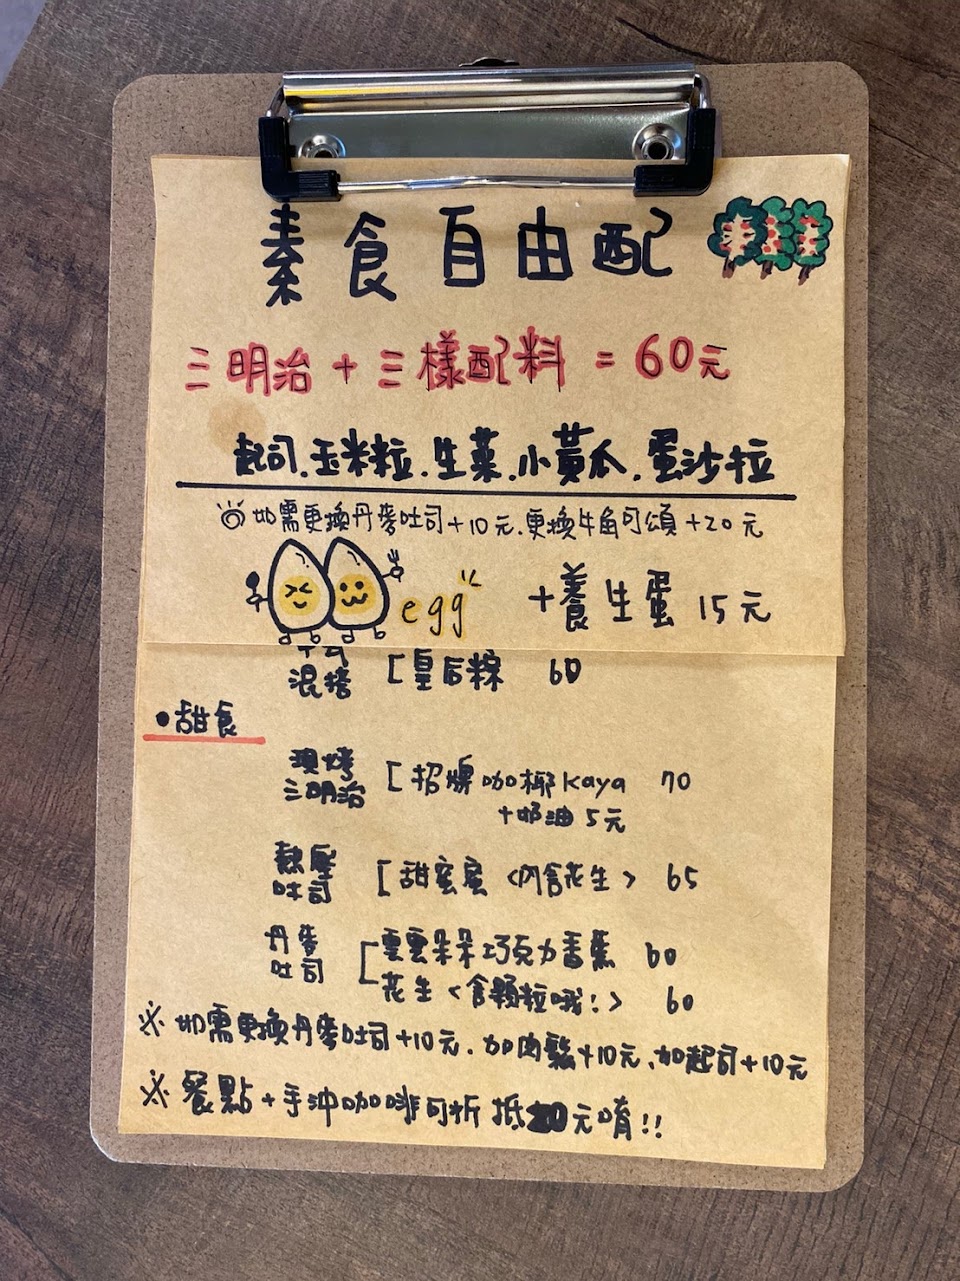 素食自由配
三明治 + 三樣配料 = 60元
起司、玉米粒、生菜、小黃瓜、蛋沙拉
如需更換丹麥吐司+10元、更換牛角可頌+20元
egg
+養生蛋 15元
混搭 [皇后粽 60
●甜食
現烤三明治 [招牌咖椰kaya 70
+奶油5元
熱壓吐司 [甜蜜蜜<內含花生> 65
丹麥吐司 [雲雲朵朵巧克力香蕉 60
花生<含顆粒哦!> 60
※如需更換丹麥吐司+10元、加肉鬆+10元、加起司+10元
※餐點+手沖咖啡可折抵20元唷!!